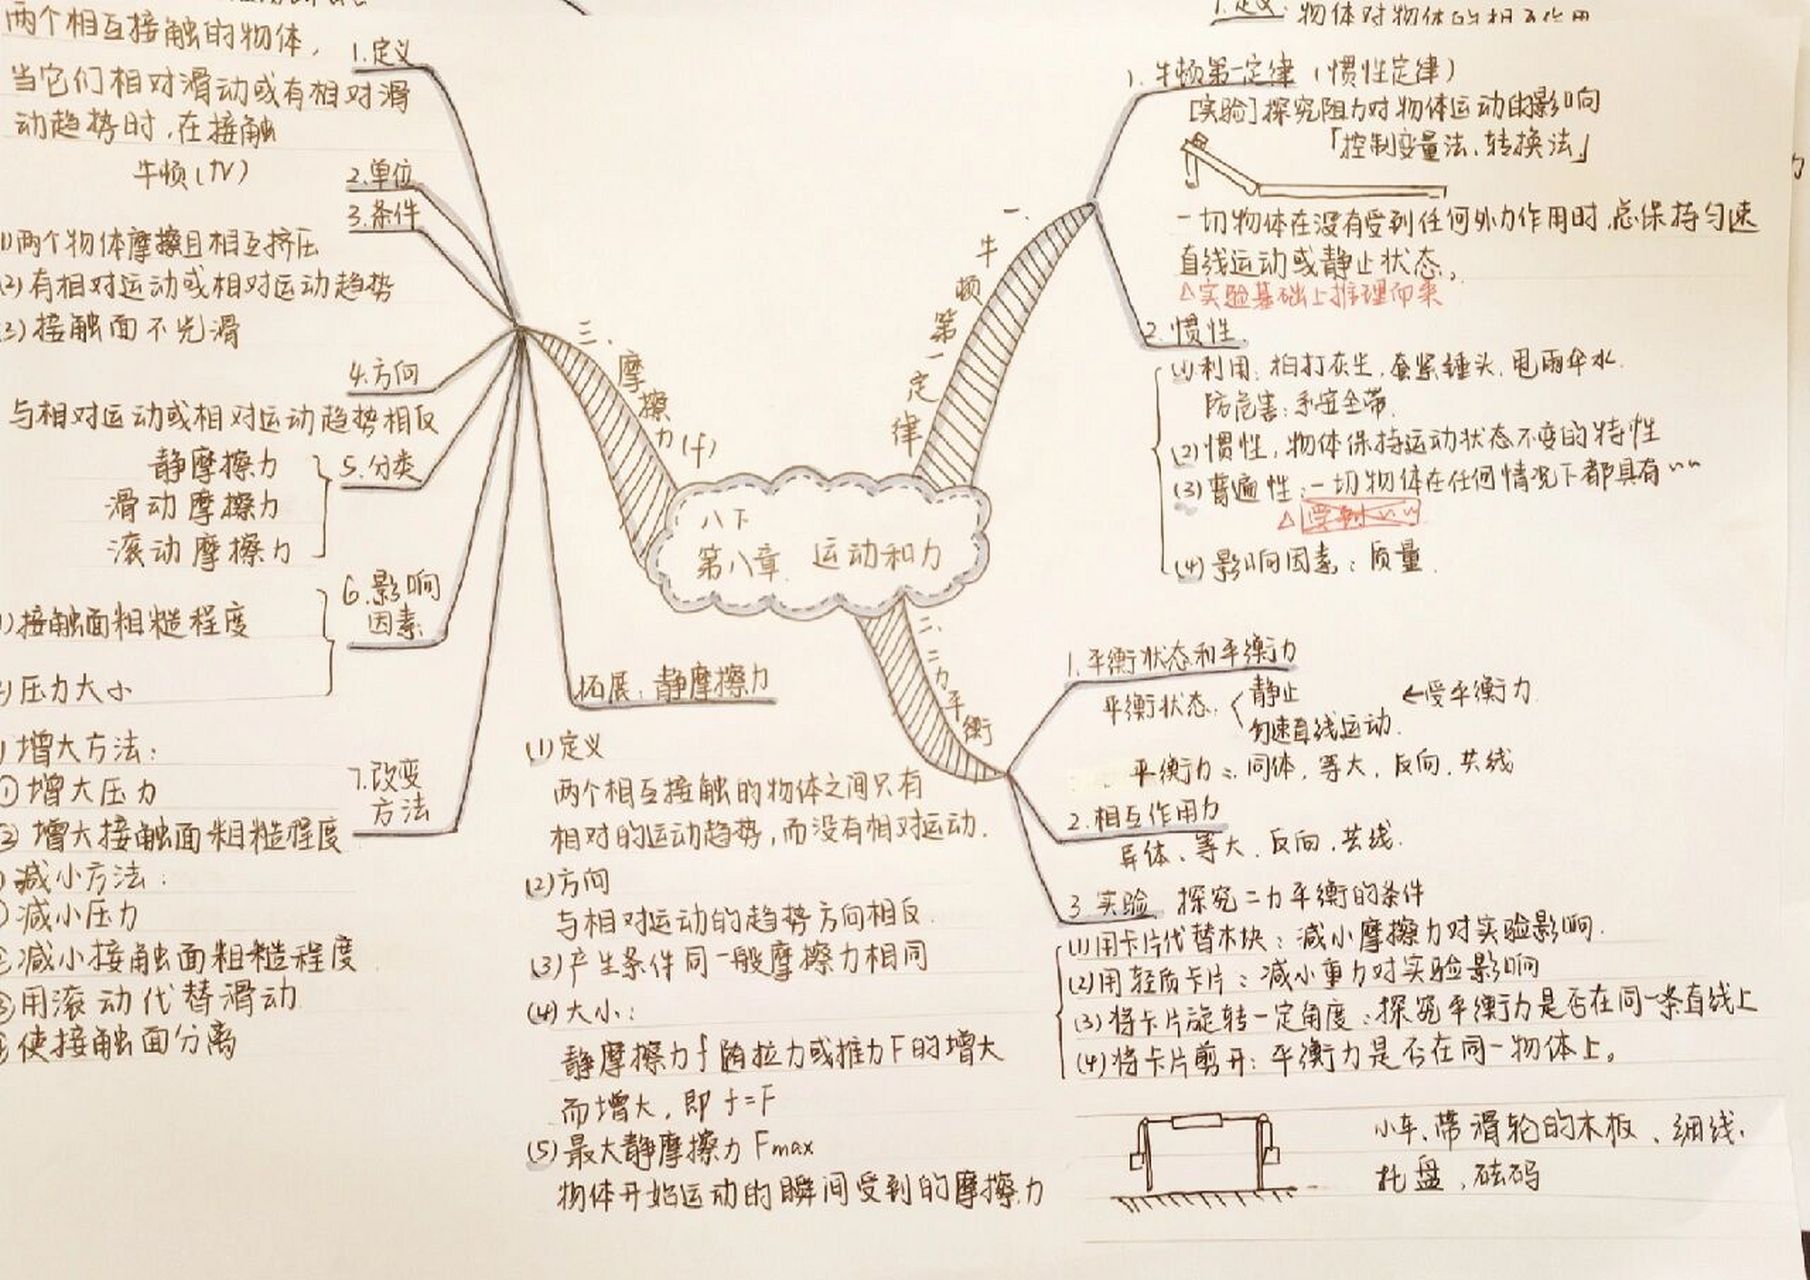 1.定义:物体对物体的相互作用
八下
第八章 运动和力
一、牛顿第一定律
1.牛顿第一定律(惯性定律)
[实验]探究阻力对物体运动的影响
「控制变量法、转换法」
一切物体在没有受到任何外力作用时,总保持匀速
直线运动或静止状态。
△实验基础上推理而来
2.惯性
(1)利用:拍打灰尘,套紧锤头,甩雨伞水.
防危害:系安全带.
(2)惯性,物体保持运动状态不变的特性
(3)普遍性:一切物体在任何情况下都具有~~
△
(4)影响因素:质量.
二、二力平衡
1.平衡状态和平衡力
平衡状态:〈静止 ←受平衡力
匀速直线运动.
平衡力:同体,等大,反向,共线
2.相互作用力
异体、等大、反向、共线.
3.实验 探究二力平衡的条件
(1)用卡片代替木块:减小摩擦力对实验影响.
(2)用轻质卡片:减小重力对实验影响
(3)将卡片旋转一定角度:探究平衡力是否在同一条直线上
(4)将卡片剪开:平衡力是否在同一物体上。
小车、带滑轮的木板、细线、
托盘、砝码
三、摩擦力(f)
1.定义
两个相互接触的物体,
当它们相对滑动或有相对滑
动趋势时,在接触
2.单位
牛顿(N)
3.条件
(1)两个物体摩擦且相互挤压
(2)有相对运动或相对运动趋势
(3)接触面不光滑
4.方向
与相对运动或相对运动趋势相反
5.分类
静摩擦力
滑动摩擦力
滚动摩擦力
6.影响
因素:
)接触面粗糙程度
)压力大小
7.改变
方法
)增大方法:
①增大压力
②增大接触面粗糙程度
)减小方法:
减小压力
减小接触面粗糙程度
用滚动代替滑动
使接触面分离
拓展:静摩擦力
(1)定义
两个相互接触的物体之间只有
相对的运动趋势,而没有相对运动.
(2)方向
与相对运动的趋势方向相反.
(3)产生条件同一般摩擦力相同
(4)大小:
静摩擦力f随拉力或推力F的增大
而增大,即f=F
(5)最大静摩擦力Fmax
物体开始运动的瞬间受到的摩擦力